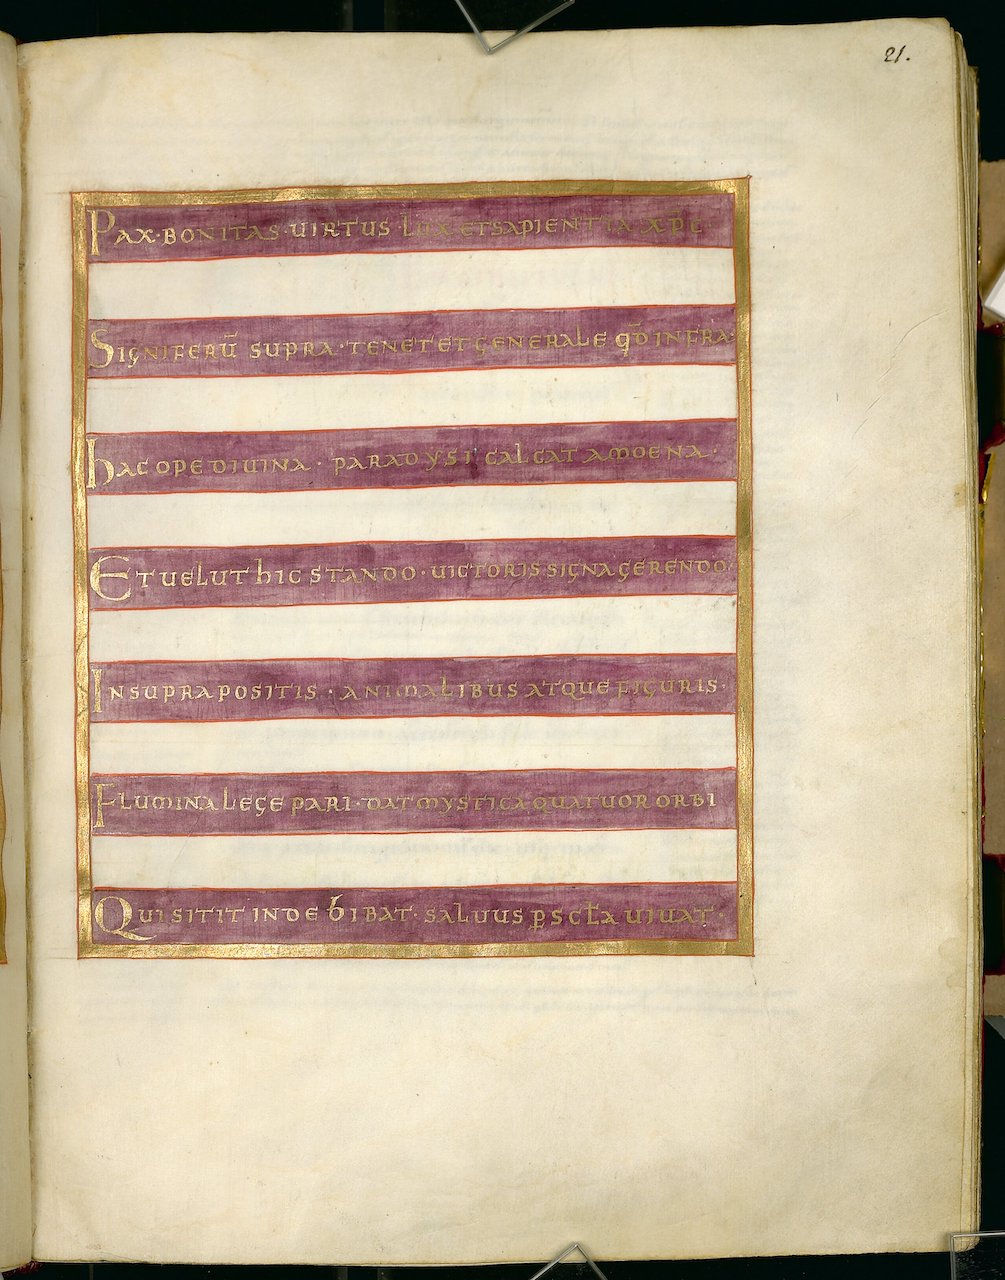 21.
PAX·BONITAS·UIRTUS LUX·ETSAPIENTIA XP̄I
SIGNIFERŪ SUPRA·TENET ET GENERALE QD̄ INFRA·
hAC OPE DIUINA· PARADYSI CALCAT AMOENA·
ET UELUT hIC STANDO·UICTORIS SIGNA GERENDO·
IN SUPRAPOSITIS·ANIMALIBUS ATQUE FIGURIS·
FLUMINA LEGE PARI·DAT MYSTICA QUATUOR ORBI
QUI SITIT INDE BIBAT·SALUUS ꝑ SCL̄A UIUAT·